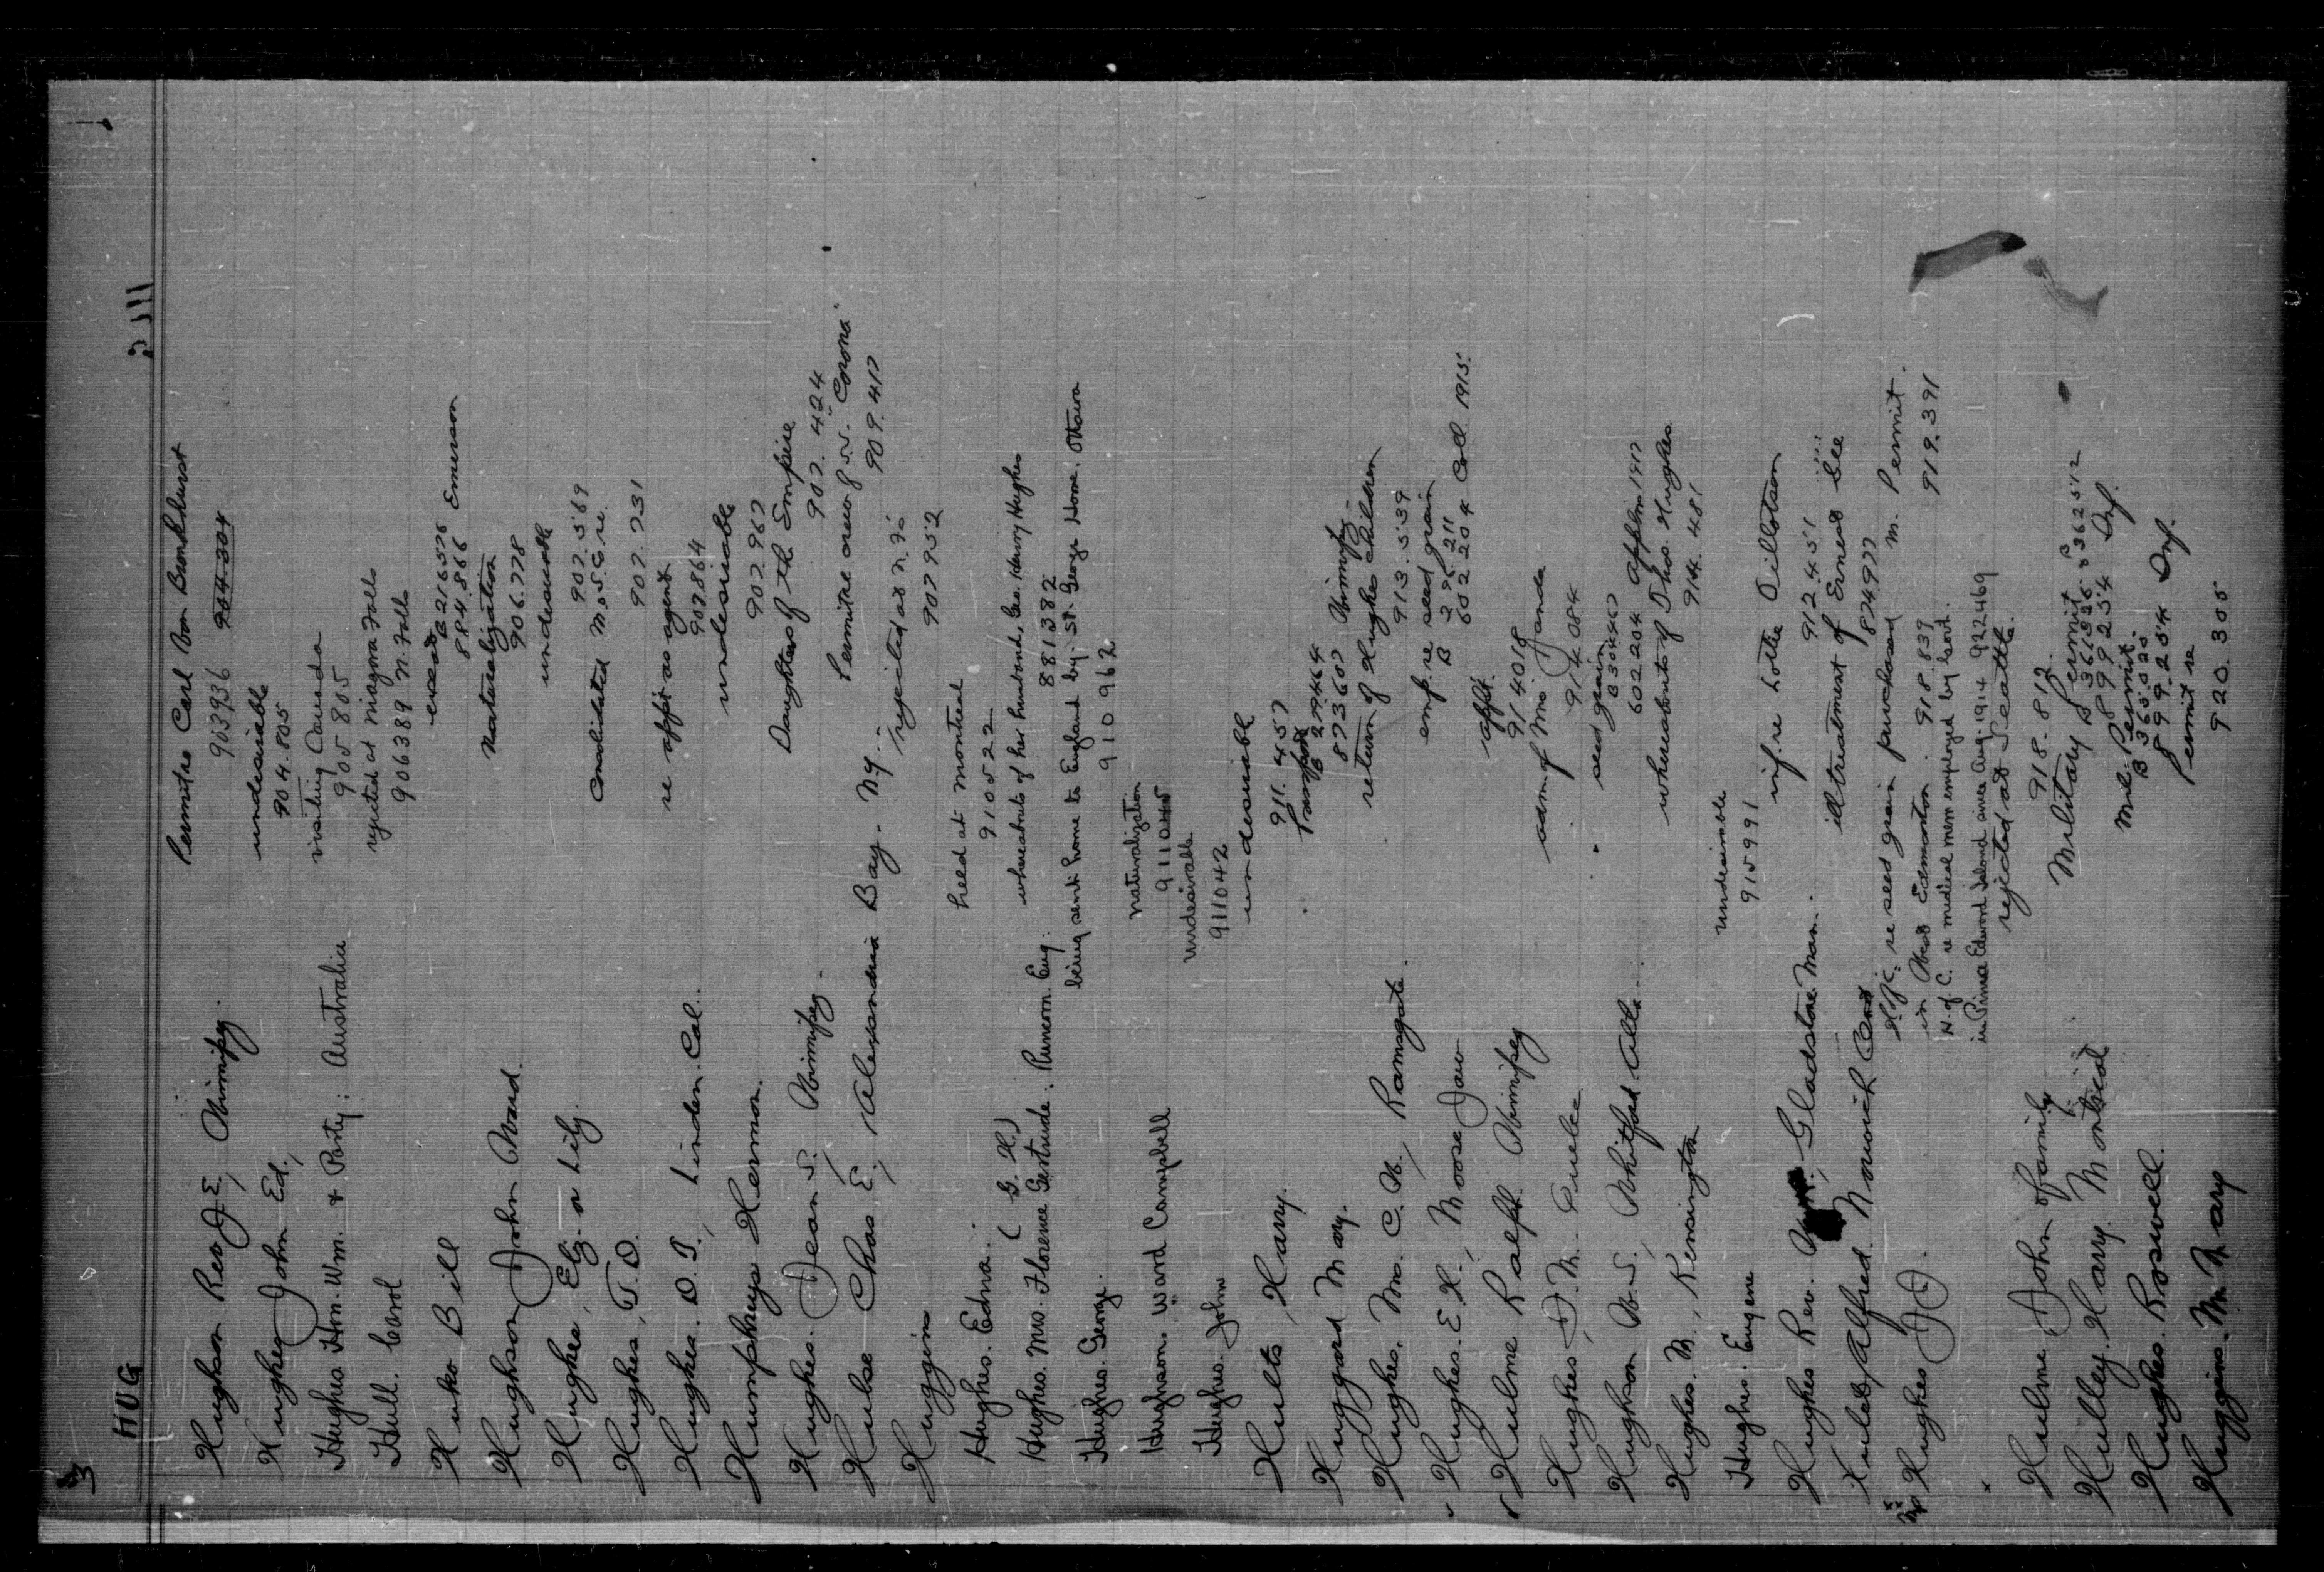 HUG
Hughson Rev J. E., Winnipeg. Permit re Carl Von Bronkhurst
903936 904.304
Hughes, John Ed., undesirable
904.805
Hughes. Hon. Wm. & Party: Australia visiting Canada
905805
Hull. Carol rejected at Niagara Falls
906389 N. Falls
Huko Bill
B 216576 Emerson
884.866
Hughson, John Ward. Naturalization
906.778
Hughes, Eliz. or Lily. undesirable
907.569
Hughes, T. D. Consolidated M. & S. Co re.
907.731
Hughes. D. T., Linden. Cal. re appt as agent
907.864
Humphreys Herman. undesirable
907967
Hughes. Dean S., Winnipeg. Daughters of the Empire
907.424
Hulse Chas E., Alexandria Bay. N.Y. Permit re crew of S.S. "Corona"
909.417
Huggins rejected at N. Fs
907952
Hughes. Edna. held at Montreal
910522
(G. H.)
Hughes. Mrs. Florence Gertrude. Runcorn. Eng. whereabouts of her husband, Geo. Henry Hughes
881382
Hughes. George. being sent home to England by St. George Home. Ottawa
910962
Hughson. Ward Campbell naturalization
911045
Hughes. John undesirable
911042
Hults, Harry. undesirable
911.457
Huggard Mary.
B 279464 Winnipeg.
873607
Hughes. Mrs. C. W., Ramsgate. return of Hughes children
913.539
Hughes. E. H., Moose Jaw emp. re seed grain
B 296 211
602 204 Col 1915.
Hulme Ralph. Winnipeg appt.
914018
Hughes, D. M. adm. of Mrs Janda
914.084
Hughson W. S., Whitford. Alta. seed grain
830440
602204 Applns 1917
Hughes. M., Kensington whereabouts of Thos. Hughes
914.481
Hughes. Eugene undesirable
915991
Hughes Rev. Wm., Gladstone. Man. inf. re Lottie Tillotson
912.451
Alfred. Norwich Cont illtreatment of Ernest Lee
874977
Hughes J. J. re seed grain purchased M. Permit.
in West Edmonton. 918.839 919.391
H. of C. re medical men employed by Govt.
in Prince Edward Island since Aug. 1914 922469
Hulme John & family rejected at Seattle.
918.812.
Hulley. Harry. Montreal Military Permit
B 361326
899254 Inf.
Hughes. Roswell. Mil. Permit.
B 365520
899.254 Inf.
Huggins. M. Mary Permit re
920.305